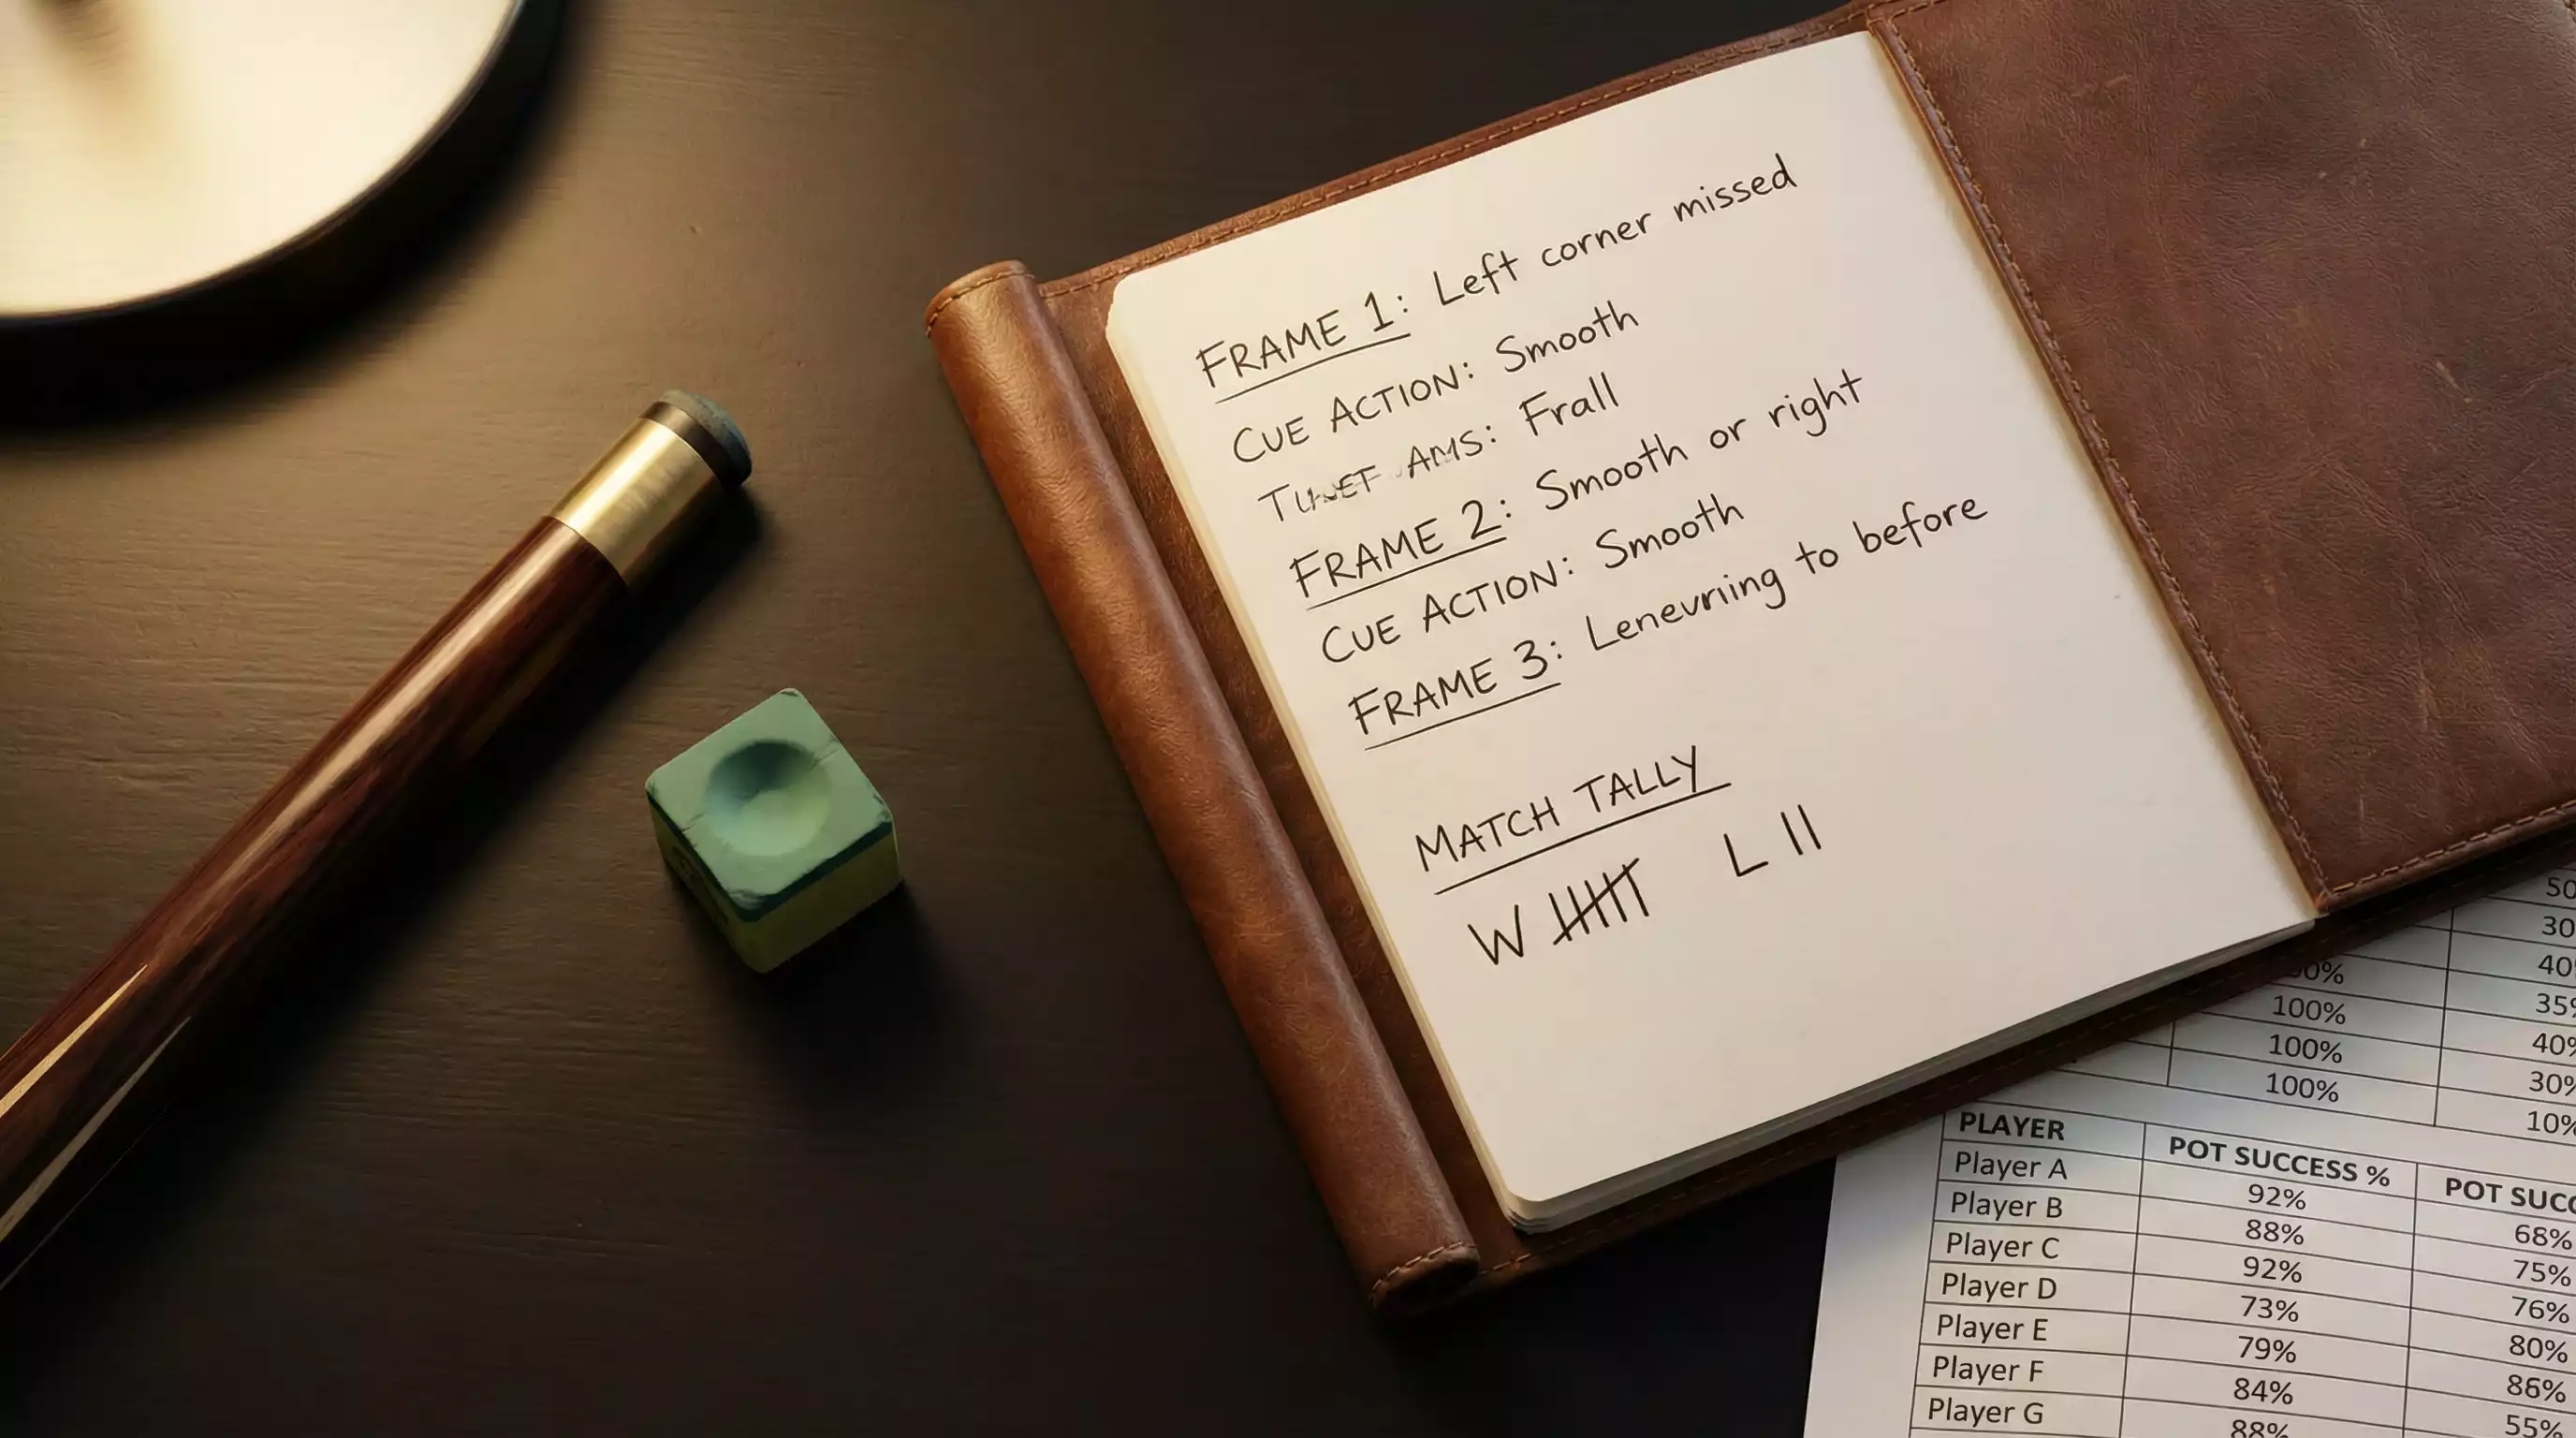 FRAME 1: Left corner missed
CUE ACTION: Smooth
AMS: Frall
FRAME 2: Smooth or right
CUE ACTION: Smooth
FRAME 3: Lenevriing to before
MATCH TALLY
W L II
50
30
40
35%
100%
40%
100%
30%
100%
10%
PLAYER POT SUCCESS % POT SUCC
Player A 92% 68%
Player B 88% 75%
Player C 92% 76%
Player D 73% 80%
Player E 79% 86%
Player F 84% 55%
Player G 88%